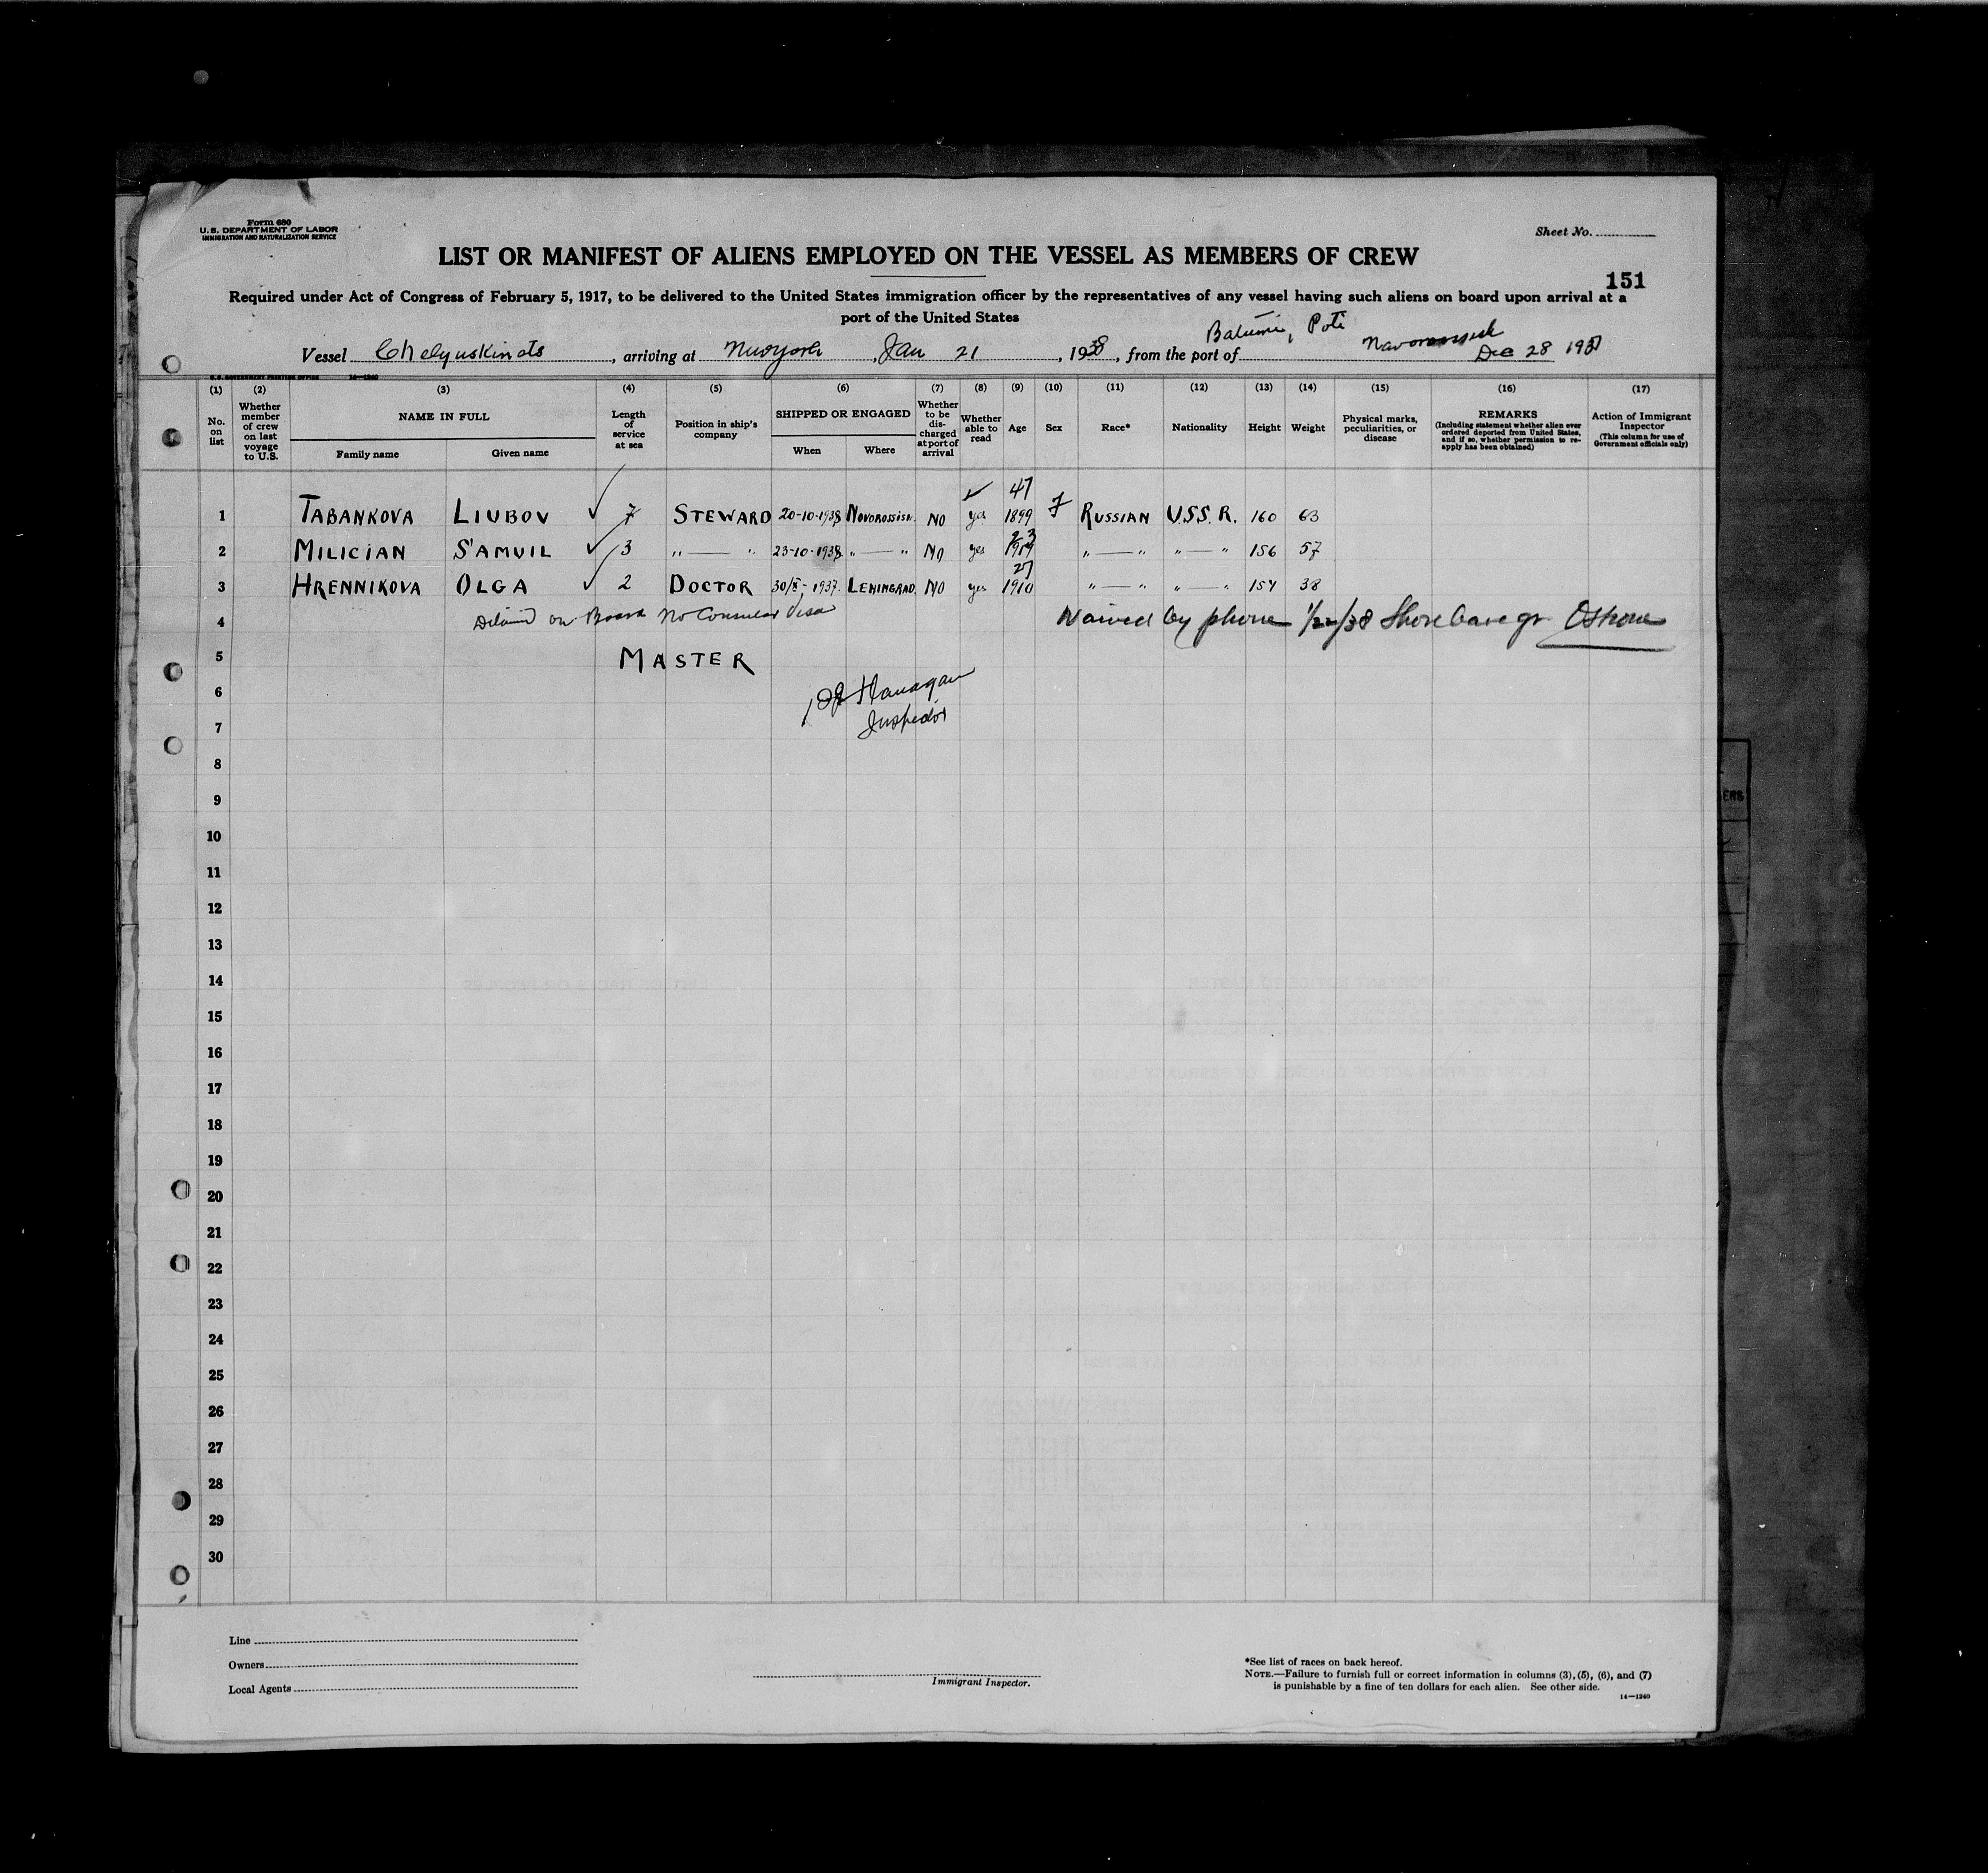 Form 680
U. S. DEPARTMENT OF LABOR
IMMIGRATION AND NATURALIZATION SERVICE
Sheet No.
LIST OR MANIFEST OF ALIENS EMPLOYED ON THE VESSEL AS MEMBERS OF CREW
151
Required under Act of Congress of February 5, 1917, to be delivered to the United States immigration officer by the representatives of any vessel having such aliens on board upon arrival at a
port of the United States
Batumi, Poti
Vessel Chelyuskinets, arriving at New York, Jan 21, 1938, from the port of Novorossisk Dec 28 1937
U. S. GOVERNMENT PRINTING OFFICE 14—1240
(1) (2) (3) (4) (5) (6) (7) (8) (9) (10) (11) (12) (13) (14) (15) (16) (17)
No. on list
Whether member of crew on last voyage to U.S.
NAME IN FULL
Family name Given name
Length of service at sea
Position in ship's company
SHIPPED OR ENGAGED
When Where
Whether to be discharged at port of arrival
Whether able to read
Age
Sex
Race*
Nationality
Height
Weight
Physical marks, peculiarities, or disease
REMARKS
(Including statement whether alien ever ordered deported from United States, and if so, whether permission to reapply has been obtained)
Action of Immigrant Inspector
(This column for use of Government officials only)
47
1 TABANKOVA LIUBOV 7 STEWARD 20-10-1938 NOVOROSSISK. NO yes 1899 f RUSSIAN U.S.S.R. 160 63
23
2 MILICIAN SAMUIL 3 " — " 23-10-1938 " — " NO yes " — " " — " 156 57
27
3 HRENNIKOVA OLGA 2 DOCTOR 1937. LENINGRAD. NO yes 1910 " — " " — " 154 38
4 Detained on Board No Consular Visa Waived by phone 1/22/38 Shore leave
5 MASTER
6 Flanagan
7 Inspector
8
9
10
11
12
13
14
15
16
17
18
19
20
21
22
23
24
25
26
27
28
29
30
Line
Owners
Local Agents
Immigrant Inspector.
*See list of races on back hereof.
NOTE.—Failure to furnish full or correct information in columns (3), (5), (6), and (7)
is punishable by a fine of ten dollars for each alien. See other side.
14—1240